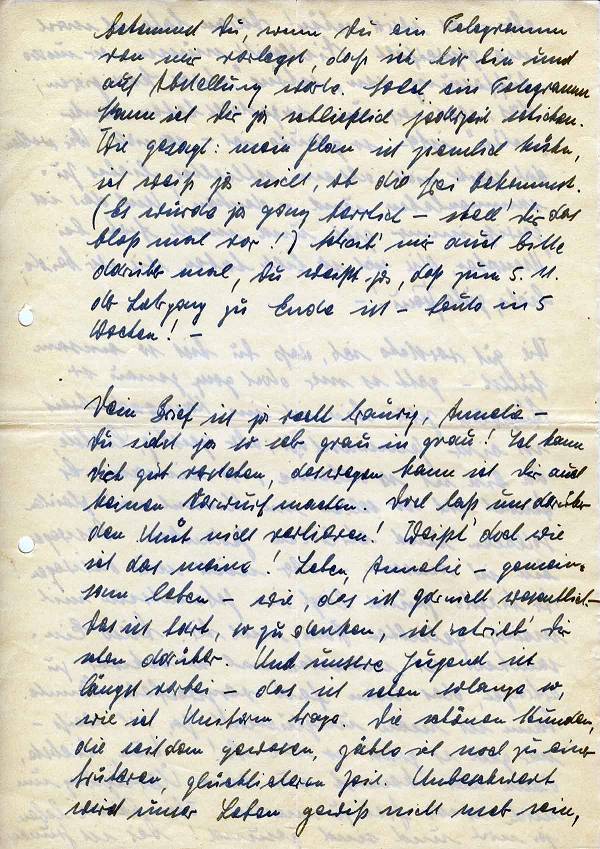 bekommst Du, wenn Du ein Telegramm
von mir vorlegst, daß ich hier bin und
auf Abstellung warte. Solch ein Telegramm
kann ich Dir ja schließlich jederzeit schicken.
Wie gesagt: mein Plan ist ziemlich kühn,
ich weiß ja nicht, ob Du frei bekommst.
(Es würde ja ganz herrlich – stell' Dir das
bloß mal vor!) Schreib' mir auch bitte
darüber mal, Du weißt ja, daß zum 5. 11.
der Lehrgang zu Ende ist – heute in 5
Wochen! –
Dein Brief ist ja recht traurig, Annelie –
Du siehst ja so sehr grau in grau! Ich kann
Dich gut verstehen, deswegen kann ich Dir auch
keinen Vorwurf machen. Doch laß uns darüber
den Mut nicht verlieren! Weißt doch wie
ich das meine! Leben, Annelie – gemein-
sam leben – wie, das ist garnicht wesentlich –
Das ist hart, so zu denken, ich schrieb' Dir
schon darüber. Und unsere Jugend ist
längst vorbei – das ist schon solange so,
wie ich Uniform trage. Die schönen Stunden,
die seitdem gewesen, zähle ich noch zu einer
früheren, glücklicheren Zeit. Unbeschwert
wird unser Leben gewiß nicht mehr sein,